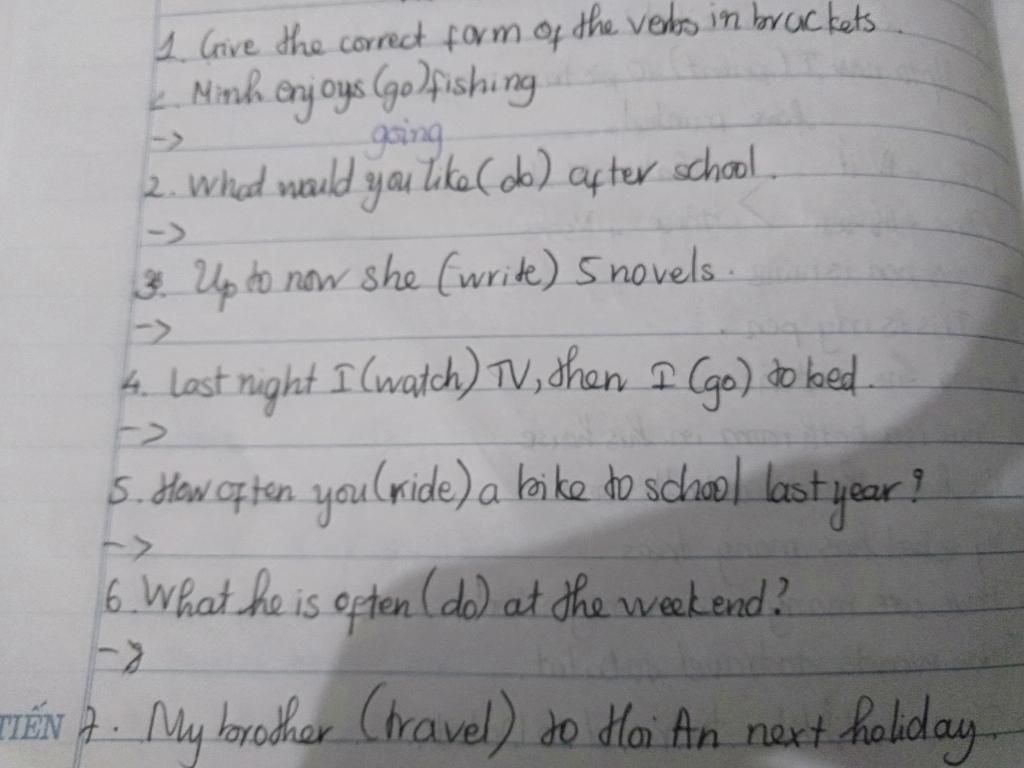 1. Give the correct form of the verbs in brackets.
Minh enjoys (go) fishing
-> going
2. What would you like (do) after school.
->
3. Up to now she (write) 5 novels.
->
4. Last night I (watch) TV, then I (go) to bed.
->
5. How often you (ride) a bike to school last year?
->
6. What he is often (do) at the weekend?
->
TIẾN 7. My brother (travel) to Hoi An next holiday.